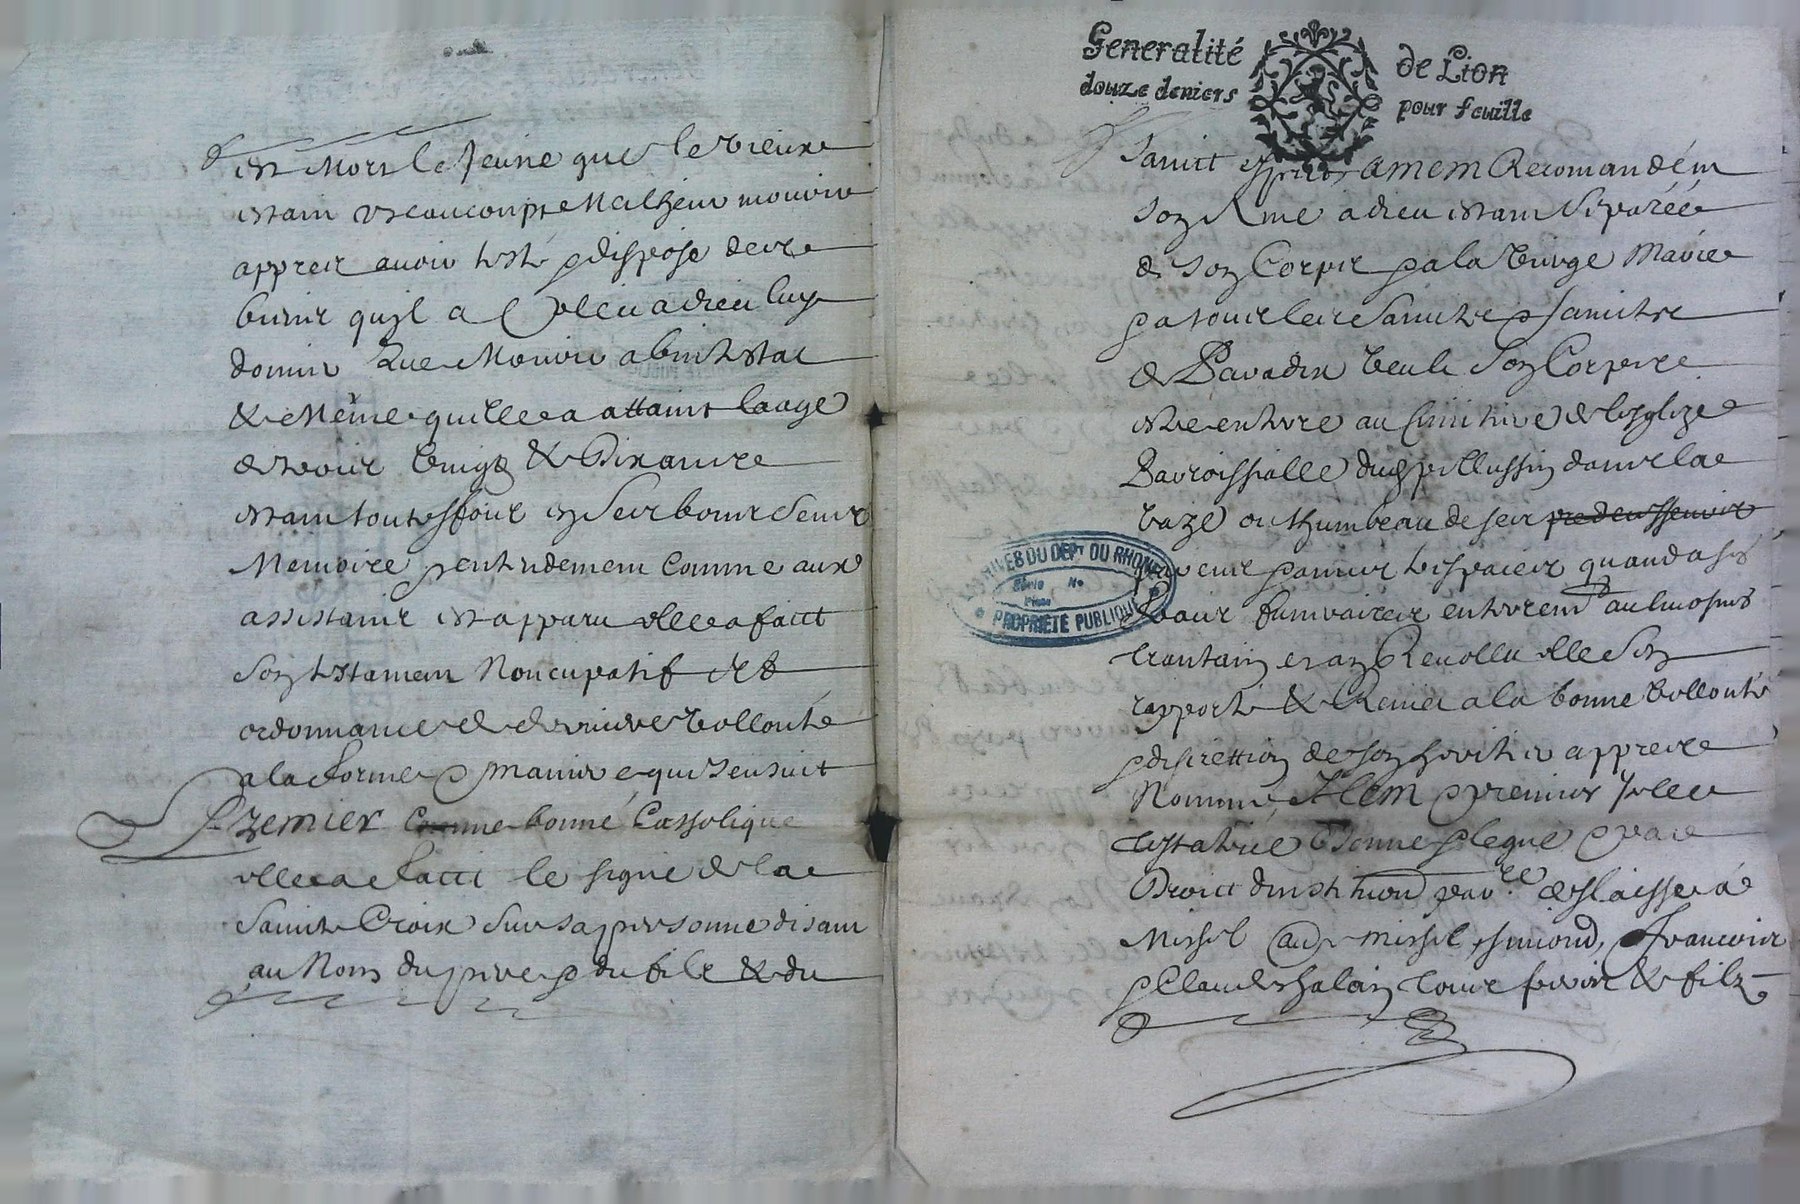 est Mort le Jeune que le vieux
estant beaucoup Malheur mourir
appres avoir testé & disposé de ses
biens quil a pleu a dieu luy
donner Que Mourir abintestat
& Mème quelle a attaint laage
de
estant touttesffois en ses bons sens
Memoire & entendement comme aux
assistants est apparu elle a faict
son testament Noncupatif
ordonnance & derniere vollonté
a la forme & maniere qui sensuit
Premier comme bonne Catholique
elle a faict le signe de la
Saincte Croix sur sa personne disant
au Nom du pere & du fils & du
Generalité de Lion
douze deniers pour feuille
Sainct esprit amem Recomandé
son Ame a dieu estant separéé
de son Corps & a la vierge Marie
& a tous les saincts & sainctes
de Paradix veult son Corps
estre enterré au cimitiere de lesglize
Parroissialle du pellussin dans la
vaze ou thumbeau de ses predessesseurs
quand a ses
fraix funeraires enterrement aulmosnes
trantain & an Revollu elle sen
rapporte & Remet a la bonne vollonté
& discrettion de son heritier appres
Nommé Item & premier Jcelle
testatrice donne & legue & par
Droict dinstitution delaisse a
Michel michel simond, Francois
& Claude tous freres & fils
ARCHIVES DU DEPT DU RHONE
Série No
PROPRIÉTÉ PUBLIQUE